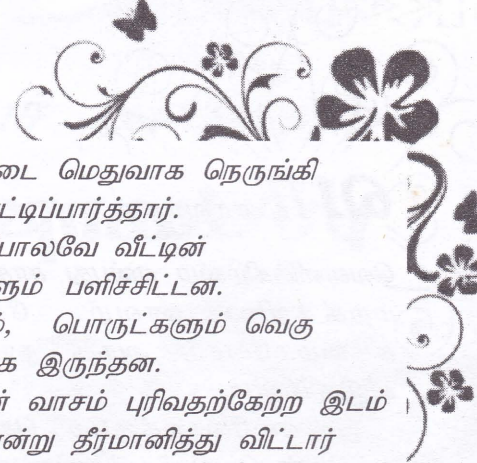 டை மெதுவாக நெருங்கி
ட்டிப்பார்த்தார்.
பாலவே வீட்டின்
ளும் பளிச்சிட்டன.
பொருட்களும் வெகு
க இருந்தன.
வாசம் புரிவதற்கேற்ற இடம்
ன்று தீர்மானித்து விட்டார்